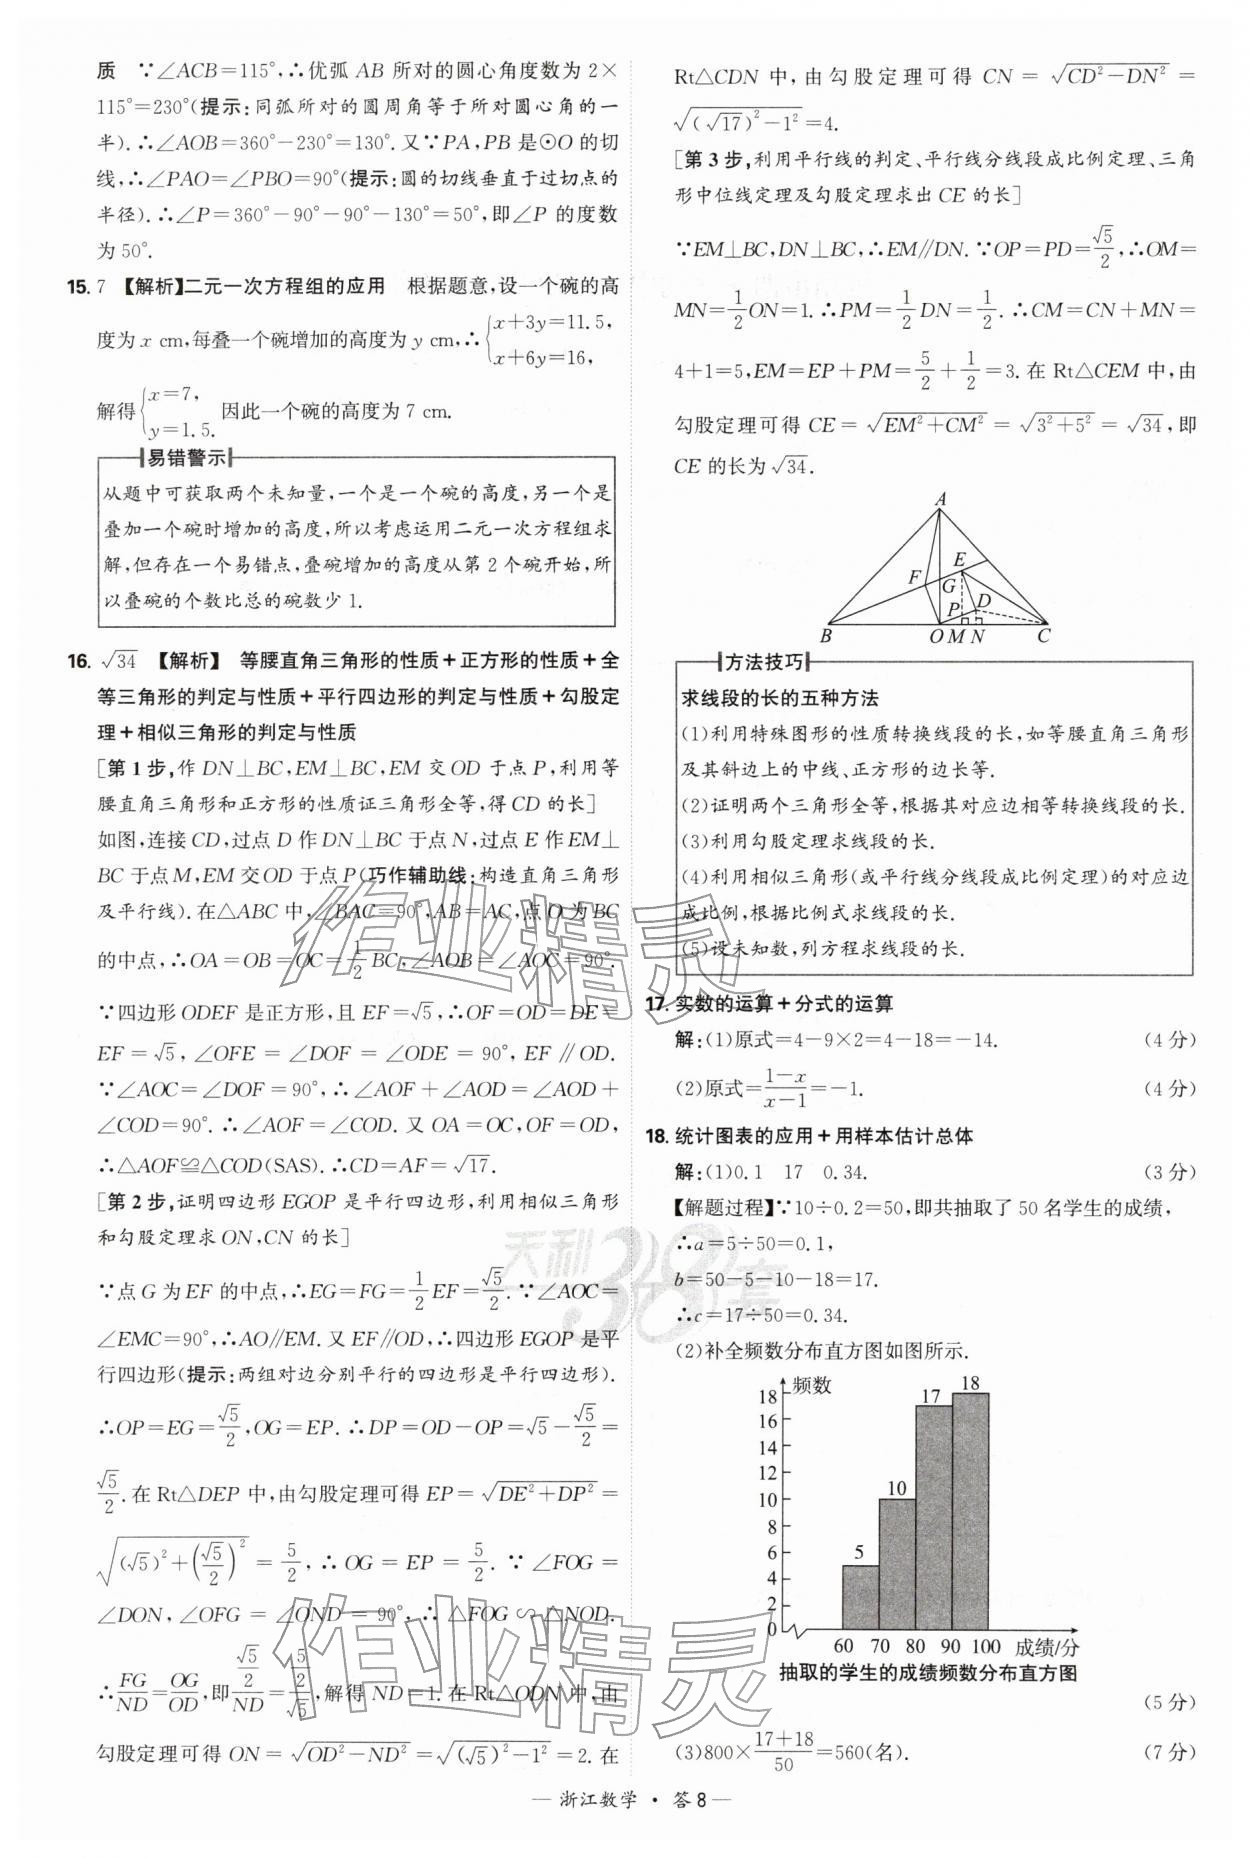 质 ∵∠ACB=115°,∴优弧 AB 所对的圆心角度数为 2×
115°=230°(提示:同弧所对的圆周角等于所对圆心角的一
半).∴∠AOB=360°-230°=130°.又∵PA,PB 是⊙O 的切
线,∴∠PAO=∠PBO=90°(提示:圆的切线垂直于过切点的
半径).∴∠P=360°-90°-90°-130°=50°,即∠P 的度数
为 50°.
15. 7 【解析】二元一次方程组的应用 根据题意,设一个碗的高
度为 x cm,每叠一个碗增加的高度为 y cm,∴{x+3y=11.5, x+6y=16,
解得{x=7, y=1.5. 因此一个碗的高度为 7 cm.
易错警示
从题中可获取两个未知量,一个是一个碗的高度,另一个是
叠加一个碗时增加的高度,所以考虑运用二元一次方程组求
解,但存在一个易错点,叠碗增加的高度从第 2 个碗开始,所
以叠碗的个数比总的碗数少 1.
16. √34 【解析】 等腰直角三角形的性质+正方形的性质+全
等三角形的判定与性质+平行四边形的判定与性质+勾股定
理+相似三角形的判定与性质
[第 1 步,作 DN⊥BC,EM⊥BC,EM 交 OD 于点 P,利用等
腰直角三角形和正方形的性质证三角形全等,得 CD 的长]
如图,连接 CD,过点 D 作 DN⊥BC 于点 N,过点 E 作 EM⊥
BC 于点 M,EM 交 OD 于点 P(巧作辅助线:构造直角三角形
及平行线).在△ABC 中,∠BAC=90°,AB=AC,点 O 为 BC
的中点,∴OA=OB=OC=1/2 BC,∠AOB=∠AOC=90°.
∵四边形 ODEF 是正方形,且 EF=√5,∴OF=OD=DE=
EF=√5,∠OFE=∠DOF=∠ODE=90°,EF∥OD.
∵∠AOC=∠DOF=90°,∴∠AOF+∠AOD=∠AOD+
∠COD=90°.∴∠AOF=∠COD.又 OA=OC,OF=OD,
∴△AOF≌△COD(SAS).∴CD=AF=√17.
[第 2 步,证明四边形 EGOP 是平行四边形,利用相似三角形
和勾股定理求 ON,CN 的长]
∵点 G 为 EF 的中点,∴EG=FG=1/2 EF=√5/2.∵∠AOC=
∠EMC=90°,∴AO∥EM.又 EF∥OD,∴四边形 EGOP 是平
行四边形(提示:两组对边分别平行的四边形是平行四边形).
∴OP=EG=√5/2,OG=EP.∴DP=OD-OP=√5-√5/2=
√5/2.在 Rt△DEP 中,由勾股定理可得 EP=√(DE²+DP²)=
√((√5)²+(√5/2)²)=5/2,∴OG=EP=5/2.∵∠FOG=
∠DON,∠OFG=∠OND=90°,∴△FOG∽△NOD.
∴FG/ND=OG/OD,即(√5/2)/ND=(5/2)/√5,解得 ND=1.在 Rt△ODN 中,由
勾股定理可得 ON=√(OD²-ND²)=√((√5)²-1²)=2.在
Rt△CDN 中,由勾股定理可得 CN=√(CD²-DN²)=
√((√17)²-1²)=4.
[第 3 步,利用平行线的判定、平行线分线段成比例定理、三角
形中位线定理及勾股定理求出 CE 的长]
∵EM⊥BC,DN⊥BC,∴EM∥DN.∵OP=PD=√5/2,∴OM=
MN=1/2 ON=1.∴PM=1/2 DN=1/2.∴CM=CN+MN=
4+1=5,EM=EP+PM=5/2+1/2=3.在 Rt△CEM 中,由
勾股定理可得 CE=√(EM²+CM²)=√(3²+5²)=√34,即
CE 的长为√34.
A
E
F
G
D
P
B
O M N
C
方法技巧
求线段的长的五种方法
(1)利用特殊图形的性质转换线段的长,如等腰直角三角形
及其斜边上的中线、正方形的边长等.
(2)证明两个三角形全等,根据其对应边相等转换线段的长.
(3)利用勾股定理求线段的长.
(4)利用相似三角形(或平行线分线段成比例定理)的对应边
成比例,根据比例式求线段的长.
(5)设未知数,列方程求线段的长.
17. 实数的运算+分式的运算
解:(1)原式=4-9×2=4-18=-14. (4 分)
(2)原式=(1-x)/(x-1)=-1. (4 分)
18. 统计图表的应用+用样本估计总体
解:(1)0.1 17 0.34. (3 分)
【解题过程】∵10÷0.2=50,即共抽取了 50 名学生的成绩,
∴a=5÷50=0.1,
b=50-5-10-18=17.
∴c=17÷50=0.34.
(2)补全频数分布直方图如图所示.
频数
18
16
14
12
10
8
6
4
2
0
5
10
17
18
60 70 80 90 100 成绩/分
抽取的学生的成绩频数分布直方图
(5 分)
(3)800×(17+18)/50=560(名). (7 分)
— 浙江数学 · 答 8 —
作业精灵
天利38套
作业精灵